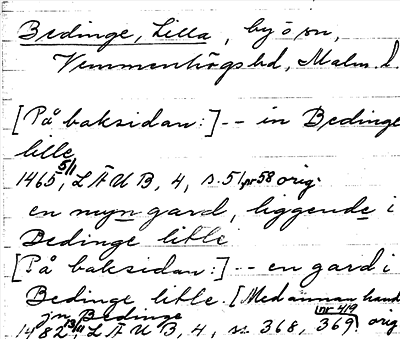 Bedinge, Lilla, by o sn,
Vemmenhögs hd, Malm. l.
[På baksidan:] -- in Bedinge
lille
1465 5/1, LÄUB, 4, s. 51 nr 58 orig.
en myn gard, liggende i
Bedinge litle
[På baksidan:] -- en gard i
Bedinge litle. [Med annan hand
jn Bedinge
1482 13/11, LÄUB, 4, s. 368, 369. nr 419 orig